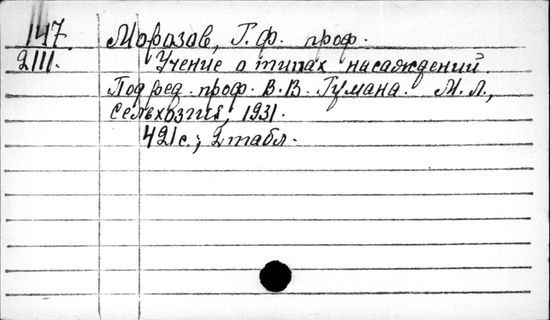 147. Морозов, Г.Ф. проф.
2111. Учение о типах насаждений.
Под ред. проф. В.В. Гумана. М.Л.,
Сельхозгиз, 1931.
421с.; 2табл.